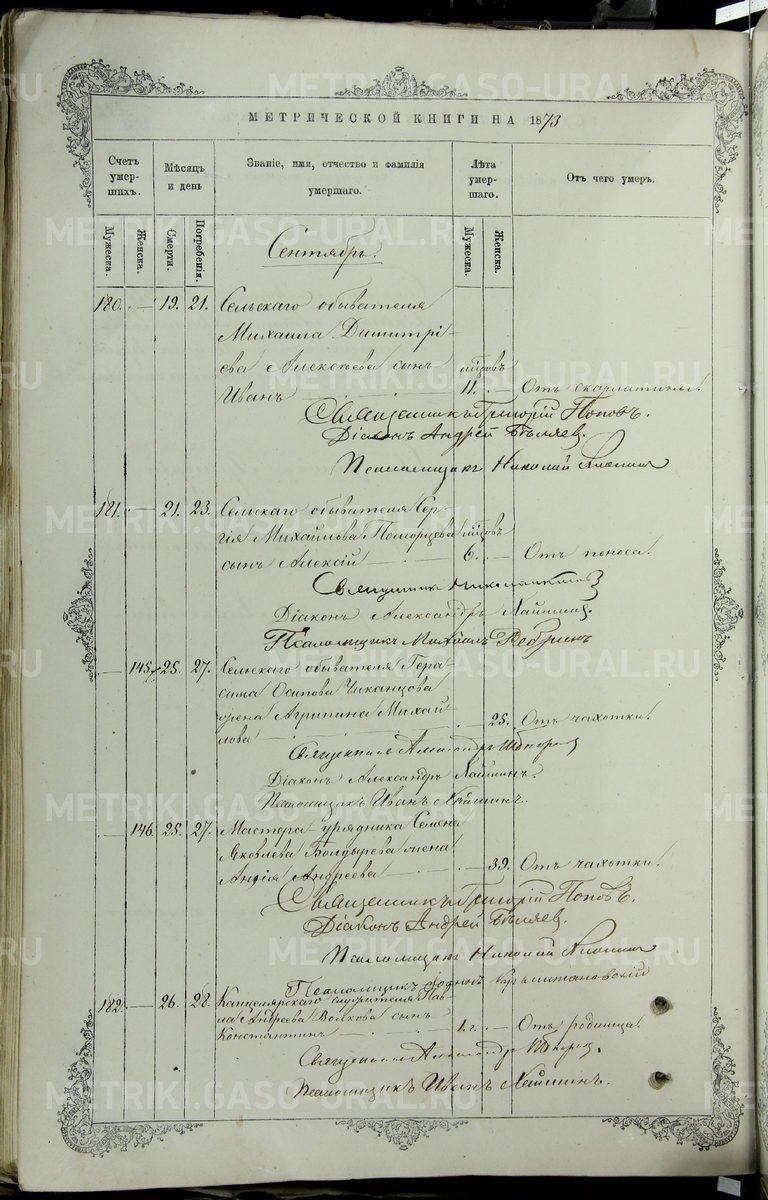 МЕТРИЧЕСКОЙ КНИГИ НА 1873
Счетъ умершихъ.
Мѣсяцъ и день
Званіе, имя, отчество и фамилія умершаго.
Лѣта умершаго.
Отъ чего умеръ.
Мужеска.
Женска.
Смерти.
Погребенія.
Мужеска.
Женска.
Сентябрь.
180. — 19. 21. Сельскаго обывателя
Михаила Димитрі-
ева Алексѣева сынъ лѣтовъ
Иванъ 11. — Отъ скарлатины.
Священникъ Григорій Поповъ.
Діаконъ Андрей Бѣляев.
Псаломщикъ Николай
181. — 21. 23. Сельскаго обывателя Сер-
гія Михайлова Поморцева лѣтовъ
сынъ Алексій — 6. — Отъ поноса.
Священникъ
Діаконъ Александръ
Псаломщикъ Михаилъ Ребринъ
— 145. 25. 27. Сельскаго обывателя Гера-
сима Осипова Чиканцова
жена Агрипина Михай-
лова — 25. Отъ чахотки.
Священникъ Александръ
Діаконъ Александръ
Псаломщикъ Иванъ
— 146. 25. 27. Мастера урядника Семена
Яковлева Болдырева жена
Андреева — 39. Отъ чахотки.
Священникъ Григорій Поповъ.
Діаконъ Андрей Бѣляев.
Псаломщикъ Николай
Псаломщикъ
182. — 26. 28. Канцелярскаго служителя Пав-
ла Андреева Волкова сынъ
Константинъ — 1 г. — Отъ родимца.
Священникъ Александръ
Псаломщикъ Иванъ
METRIKI.GASO-URAL.RU